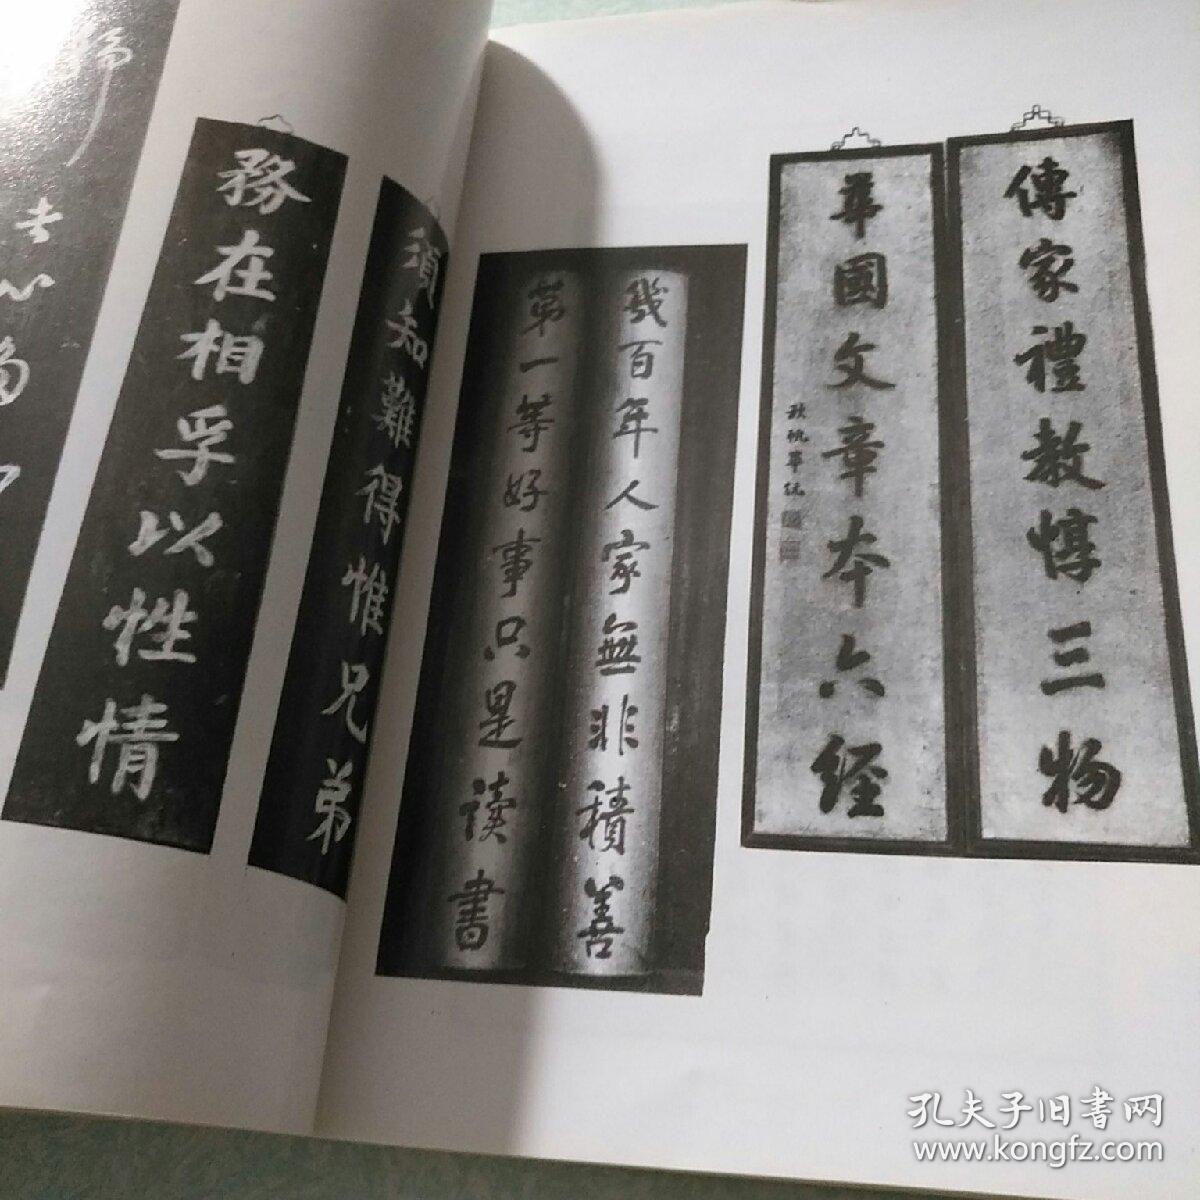 傳家禮教惇三物
華國文章本六經
秋帆畢沅
幾百年人家無非積善
第一等好事只是读書
須知難得惟兄弟
務在相孚以性情
孔夫子旧書网
www.kongfz.com